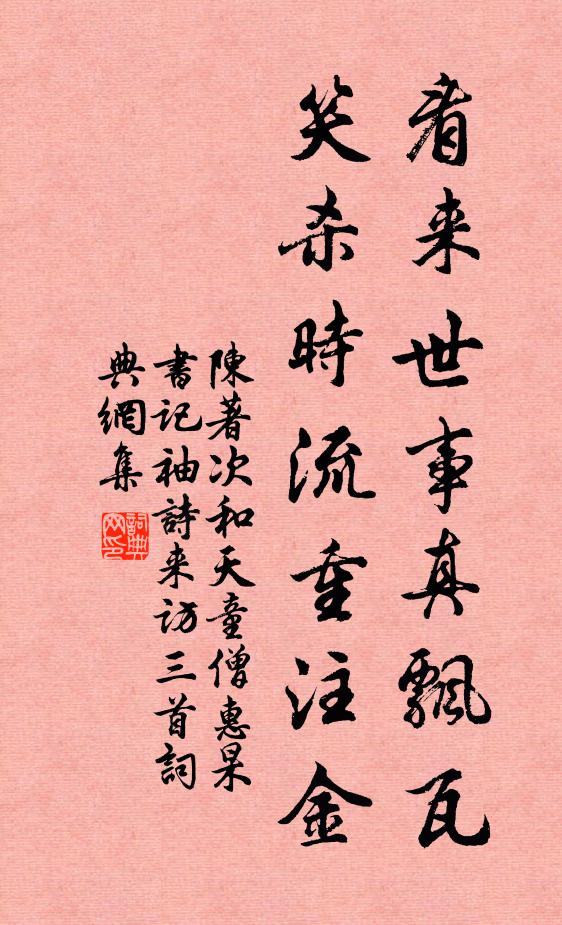 看来世事真飄瓦
笑杀時流重注金
陳著次和天童僧惠杲
書記袖詩来訪三首詞
典網集
詞典网印